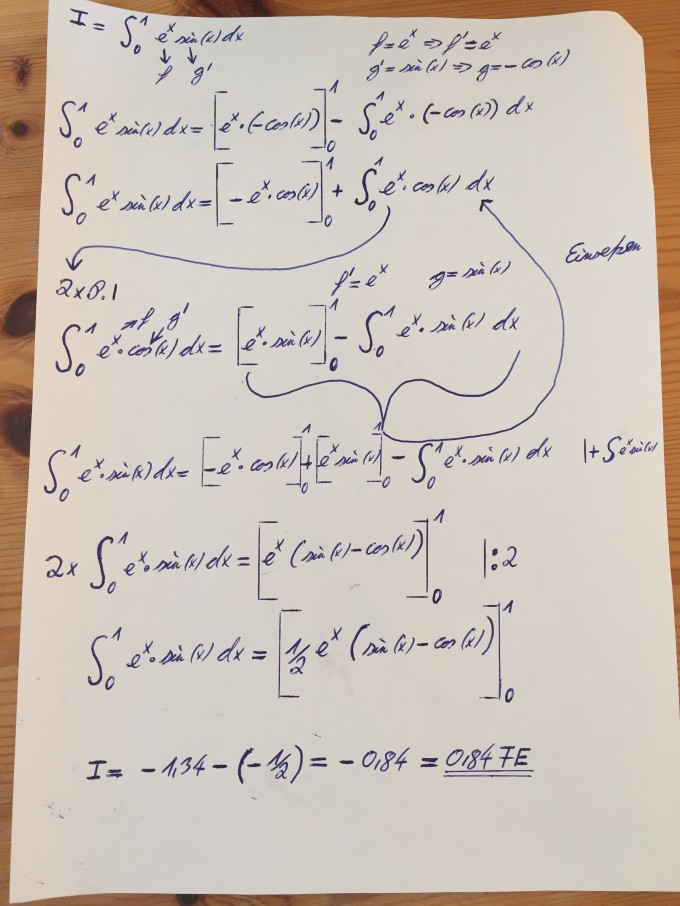 I = ∫₀¹ eˣ sin(x) dx
f = eˣ ⇒ f' = eˣ
↓ ↓
f g'
g' = sin(x) ⇒ g = -cos(x)
∫₀¹ eˣ sin(x) dx = [eˣ · (-cos(x))]₀¹ - ∫₀¹ eˣ · (-cos(x)) dx
∫₀¹ eˣ sin(x) dx = [-eˣ · cos(x)]₀¹ + ∫₀¹ eˣ · cos(x) dx
Einsetzen
2x P.I
f' = eˣ g = sin(x)
f g'
∫₀¹ eˣ · cos(x) dx = [eˣ · sin(x)]₀¹ - ∫₀¹ eˣ · sin(x) dx
∫₀¹ eˣ · sin(x) dx = [-eˣ · cos(x)]₀¹ + [eˣ sin(x)]₀¹ - ∫₀¹ eˣ · sin(x) dx |+ ∫ eˣ sin(x)
2x ∫₀¹ eˣ · sin(x) dx = [eˣ (sin(x) - cos(x))]₀¹ |:2
∫₀¹ eˣ · sin(x) dx = [1/2 eˣ (sin(x) - cos(x))]₀¹
I = -1,34 - (-1/2) = -0,84 = 0,84 FE